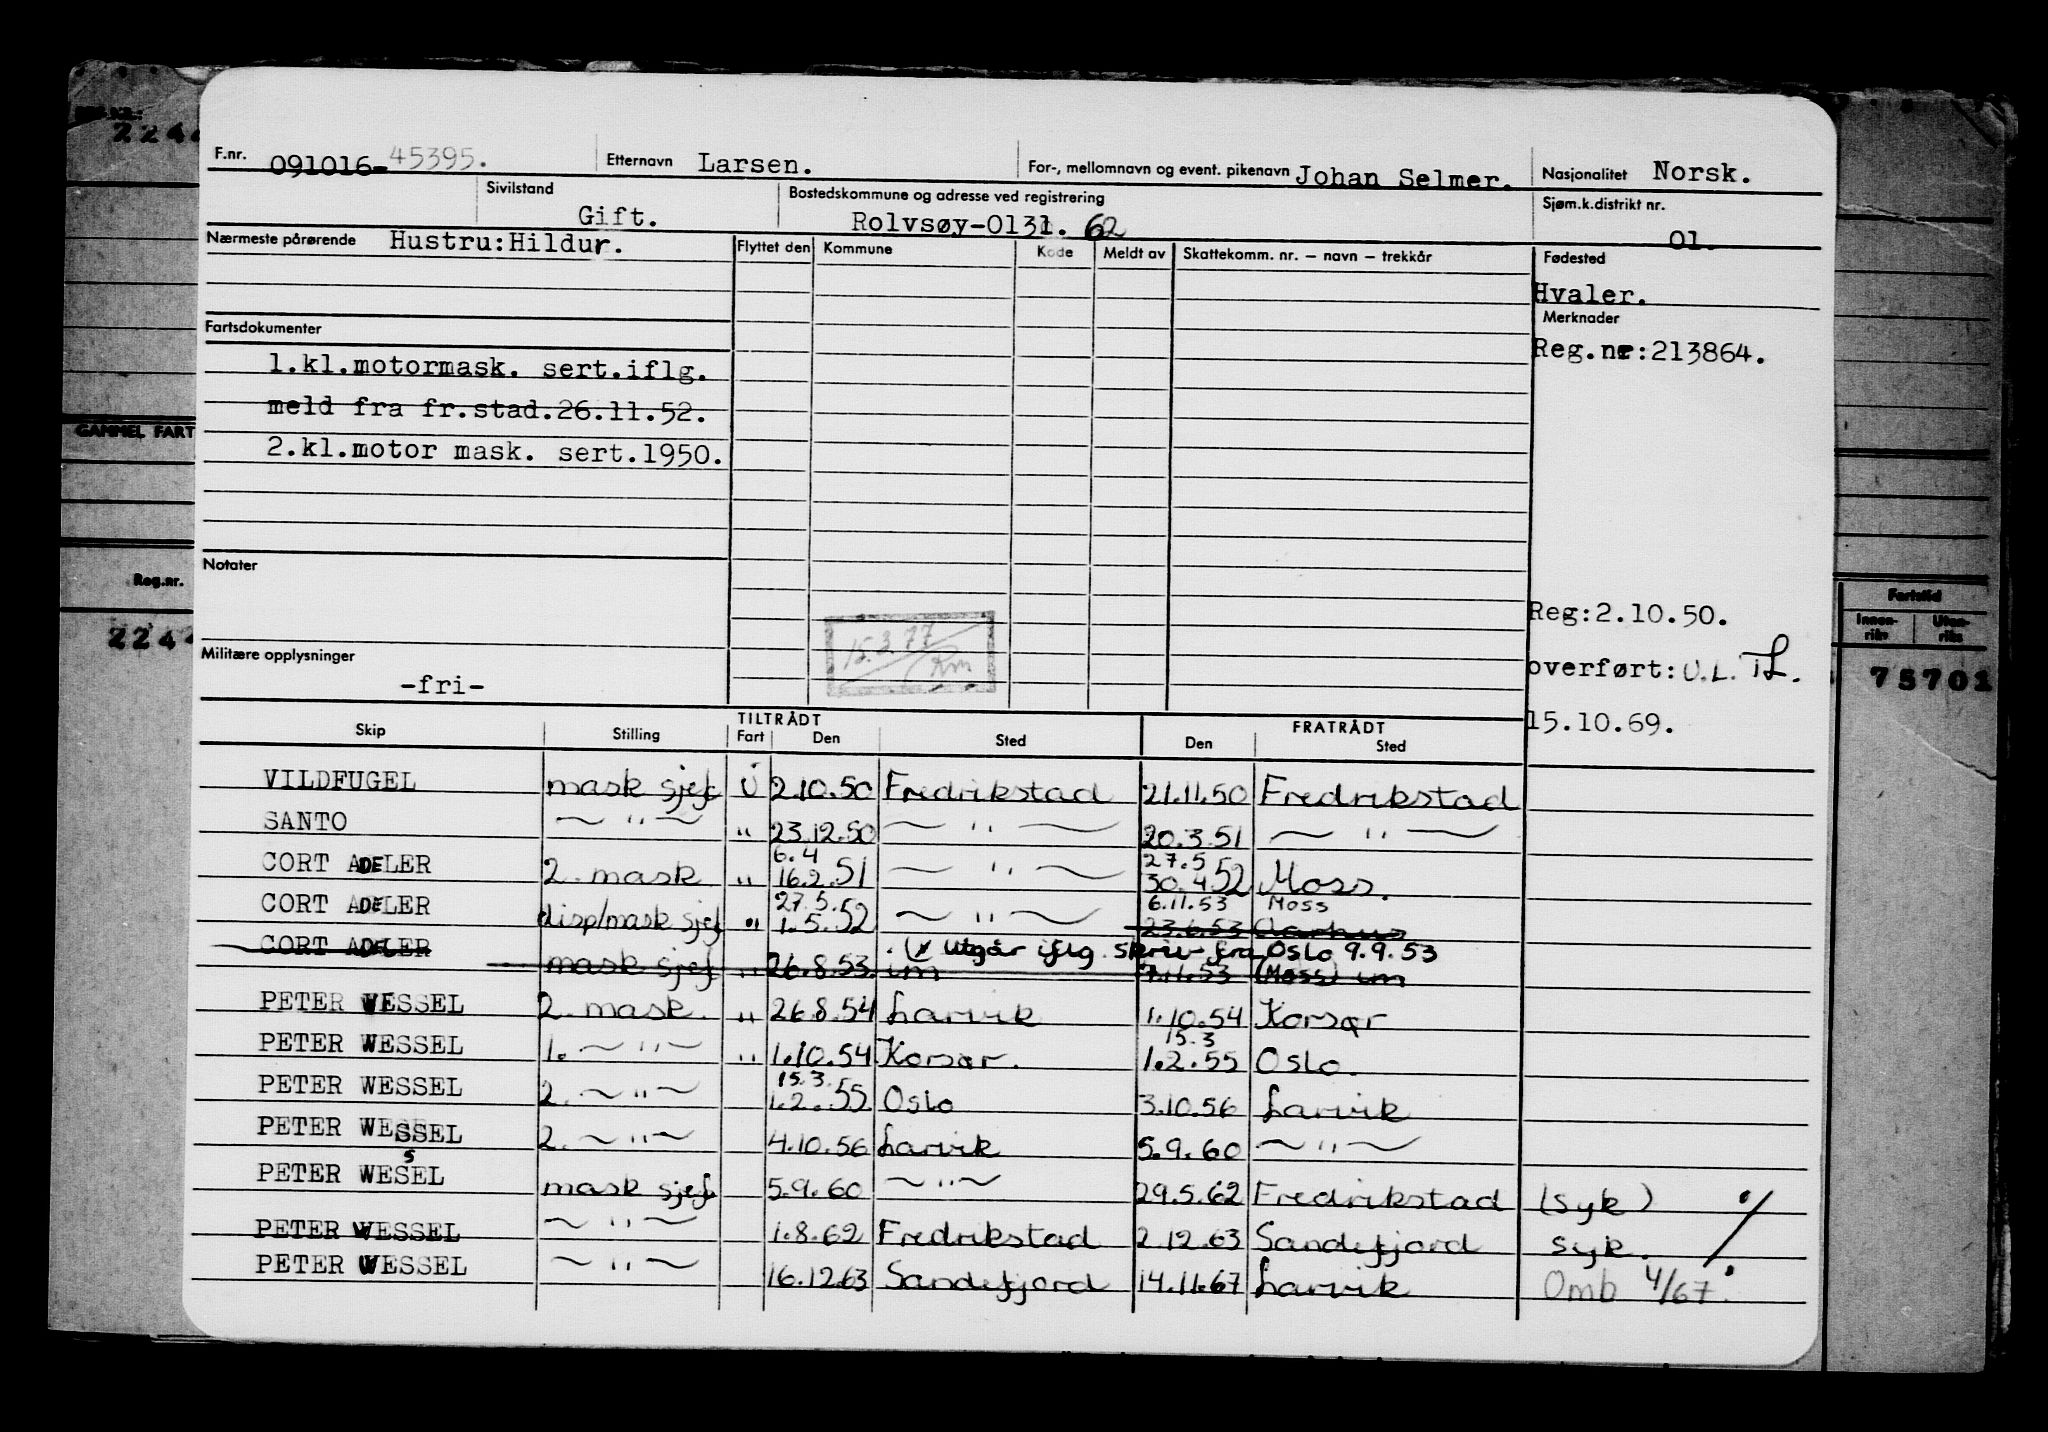 REG.NR.:
2244
F.nr. 091016-45395. Etternavn Larsen. For-, mellomnavn og event. pikenavn Johan Selmer. Nasjonalitet Norsk.
Sivilstand Gift. Bostedskommune og adresse ved registrering Rolvsøy-0131. 62 Sjøm.k.distrikt nr. 01.
Nærmeste pårørende Hustru:Hildur. Flyttet den Kommune Kode Meldt av Skattekomm. nr. – navn – trekkår Fødested
Hvaler.
Fartsdokumenter Merknader
1.kl.motormask. sert.iflg. Reg.nr:213864.
meld fra fr.stad.26.11.52.
GAMMEL FART
2.kl.motor mask. sert.1950.
Notater
Reg.nr. Fartstid
Innenriks Utenriks
2244 15.3.77 Reg:2.10.50.
Militære opplysninger overført: U.L. 75701
-fri- 15.10.69.
TILTRÅDT FRATRÅDT
Skip Stilling Fart Den Sted Den Sted
VILDFUGEL mask sjef U 2.10.50 Fredrikstad 21.11.50 Fredrikstad
SANTO ~ " ~ " 23.12.50 ~ " ~ 20.3.51 ~ " ~
6.4 27.5
CORT ADELER 2. mask " 16.2.51 ~ " ~ 30.4.52 Moss.
27.5. 6.11.53 Moss
CORT ADELER disp/mask sjef " 1.5.52 ~ " ~ 23.6.53 Aarhus
(x utgår iflg. skriv fra Oslo 9.9.53
CORT ADELER mask sjef " 26.8.53. im 7.11.53 (Moss) im
PETER WESSEL 2. mask. " 26.8.54 Larvik 1.10.54 Korsør
15.3
PETER WESSEL 1. ~ " ~ " 1.10.54 Korsør. 1.2.55 Oslo.
15.3.
PETER WESSEL 2. ~ " ~ 1.2.55 Oslo 3.10.56 Larvik
PETER WESSEL 2. ~ " ~ 4.10.56 Larvik 5.9.60 ~ " ~
PETER WESSEL mask sjef 5.9.60 ~ " ~ 29.5.62 Fredrikstad (syk)
PETER WESSEL ~ " ~ 1.8.62 Fredrikstad 2.12.63 Sandefjord syk.
PETER WESSEL ~ " ~ 16.12.63 Sandefjord 14.11.67 Larvik Omb 4/67.